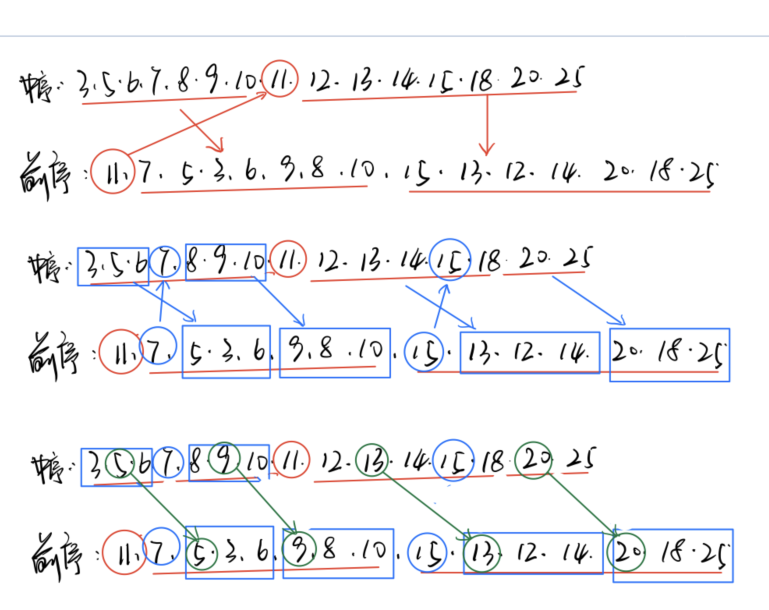 中序: 3.5.6.7.8.9.10.11. 12. 13.14.15.18.20.25
前序: 11.7. 5.3.6.9.8.10. 15.13.12.14.20.18.25
中序: 3.5.6.7.8.9.10.11. 12. 13.14.15.18.20.25
前序: 11.7. 5.3.6.9.8.10. 15.13.12.14.20.18.25
中序: 3 5.6 7. 8 9 10.11. 12. 13.14.15.18 20 25
前序: 11.7. 5.3.6.9.8.10. 15.13.12.14.20.18.25